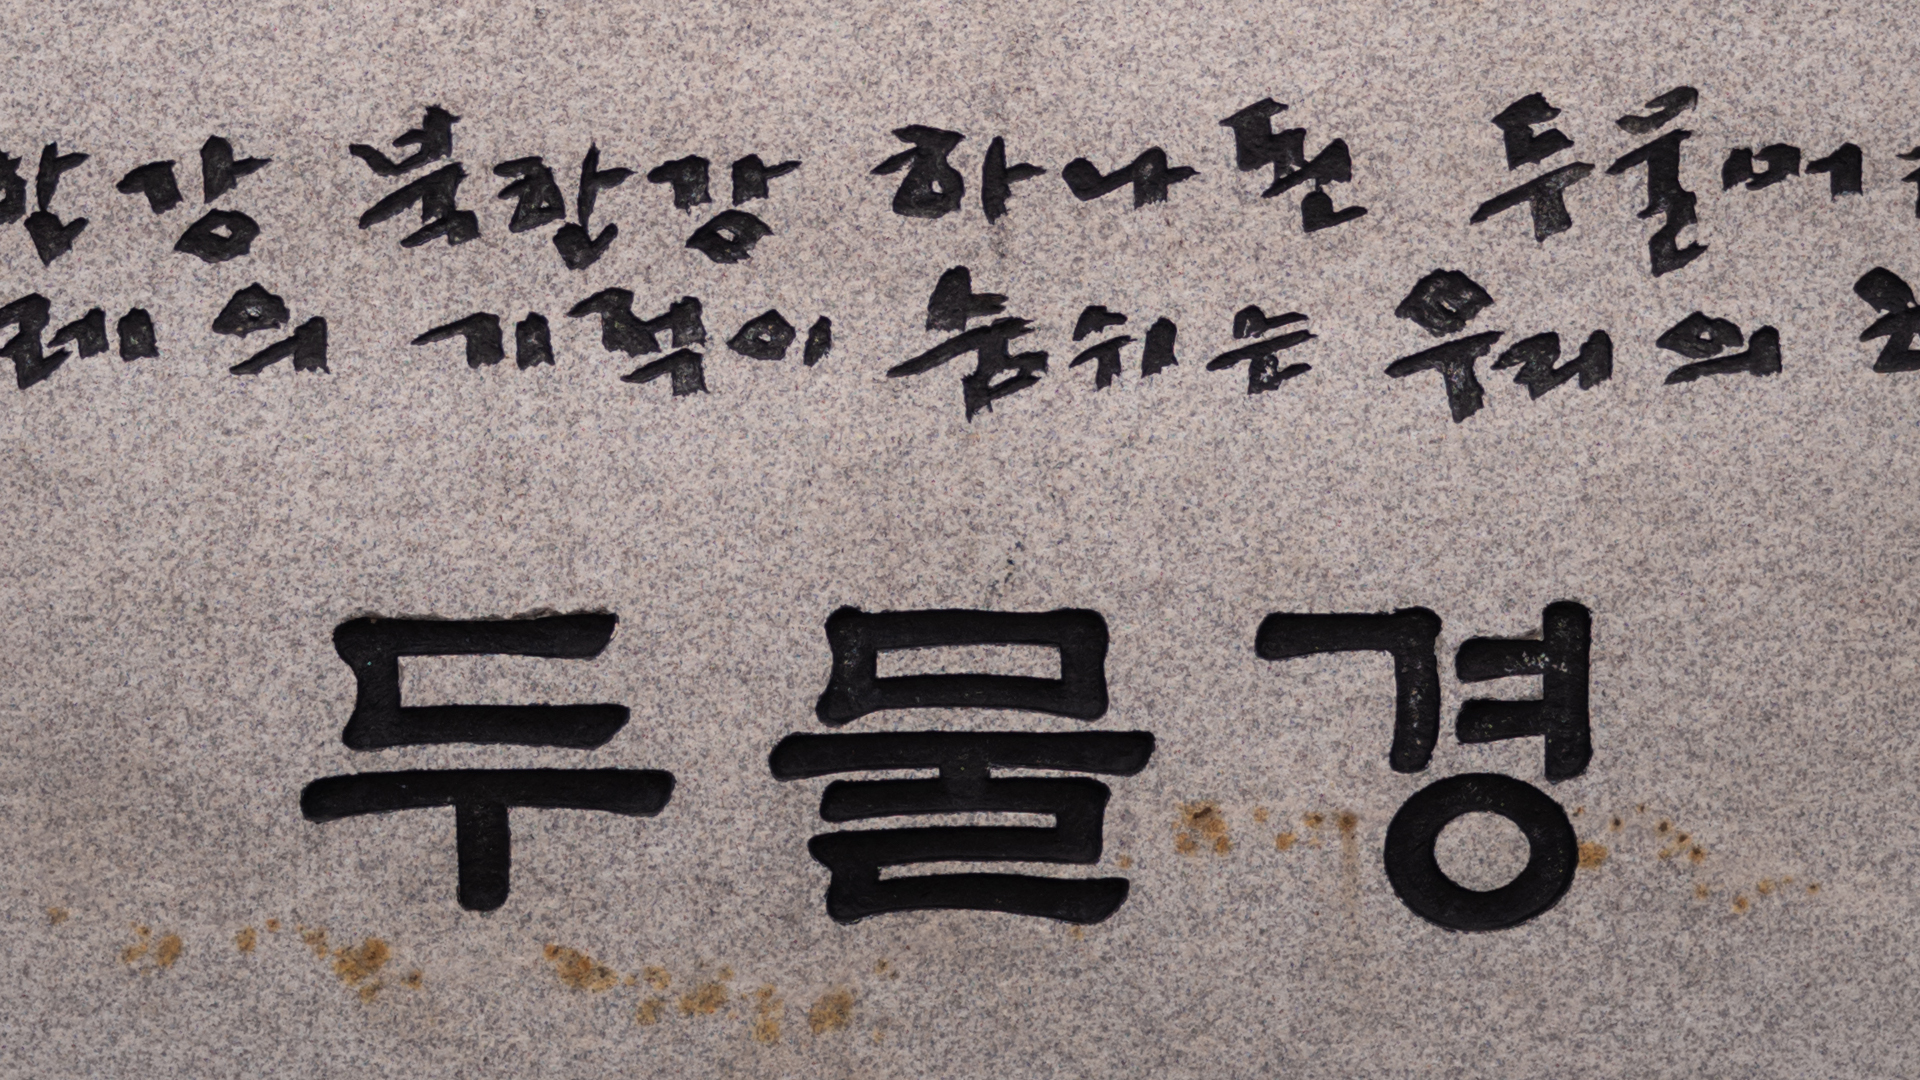 한강 북한강 하나된 두물머
레의 기적이 숨쉬는 우리의
두물경